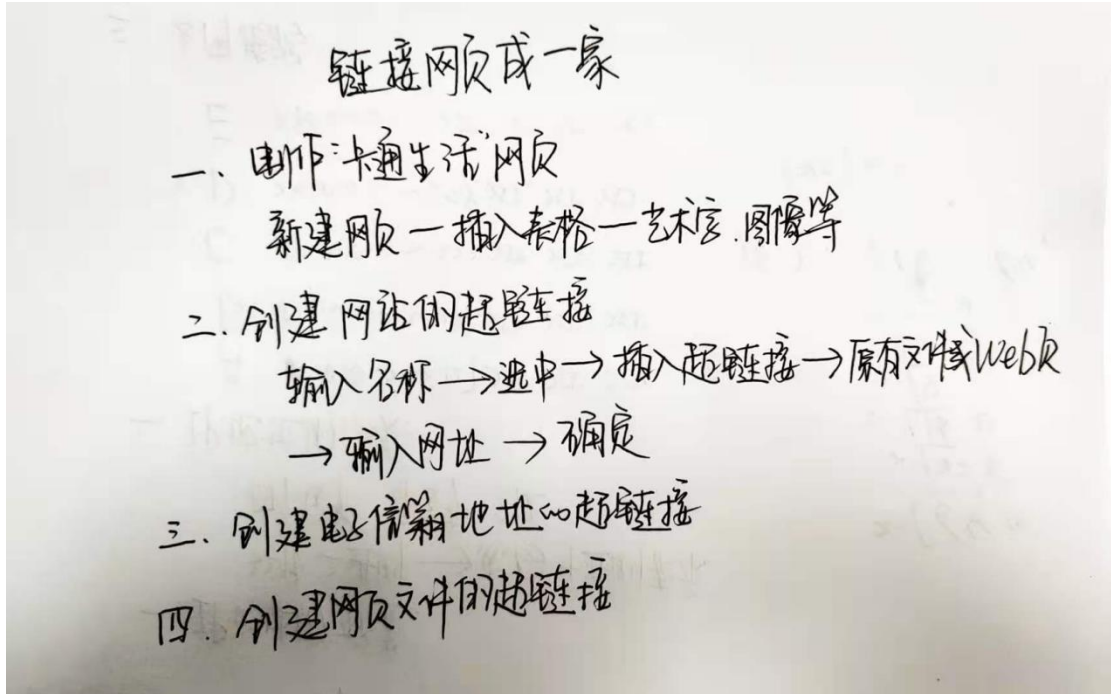 链接网页成一家
一、制作“卡通生活”网页
新建网页—插入表格—艺术字.图像等
二.创建网站的超链接
输入名称→选中→插入超链接→原有文件或Web页
→输入网址→确定
三.创建电子信箱地址的超链接
四.创建网页文件的超链接